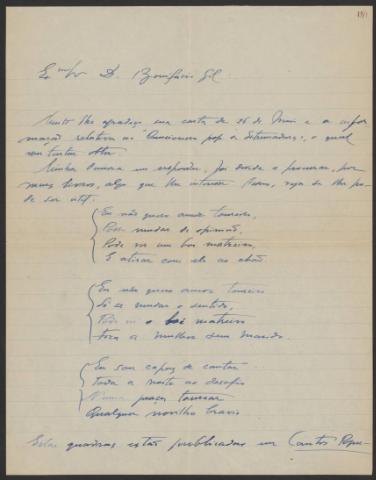 Exmo Sr D. Bonifacio Gil
Muito lhe agradeço sua carta de 26 de e a infor
mação relativa ao "Cancionero pop de Extremadura", o qual
vou tentar obter.
Minha em responder, foi devida a procurar, por
meus livros, algo que lhe veja se lhe po-
de ser util.
Eu não quero amor toureiro,
Pode mudar de opinião,
Pode vir um boi matreiro,
E atirar com ele ao chão
Eu não quero amor toureiro
Só se mudar o sentido,
Pode vir o boi matreiro
fica a mulher sem marido.
Eu sou capaz de cantar
Toda a noite ao desafio
Numa praça tourear
Qualquer novilho bravio
Estas quadras estão publicadas em Cantos Popu-